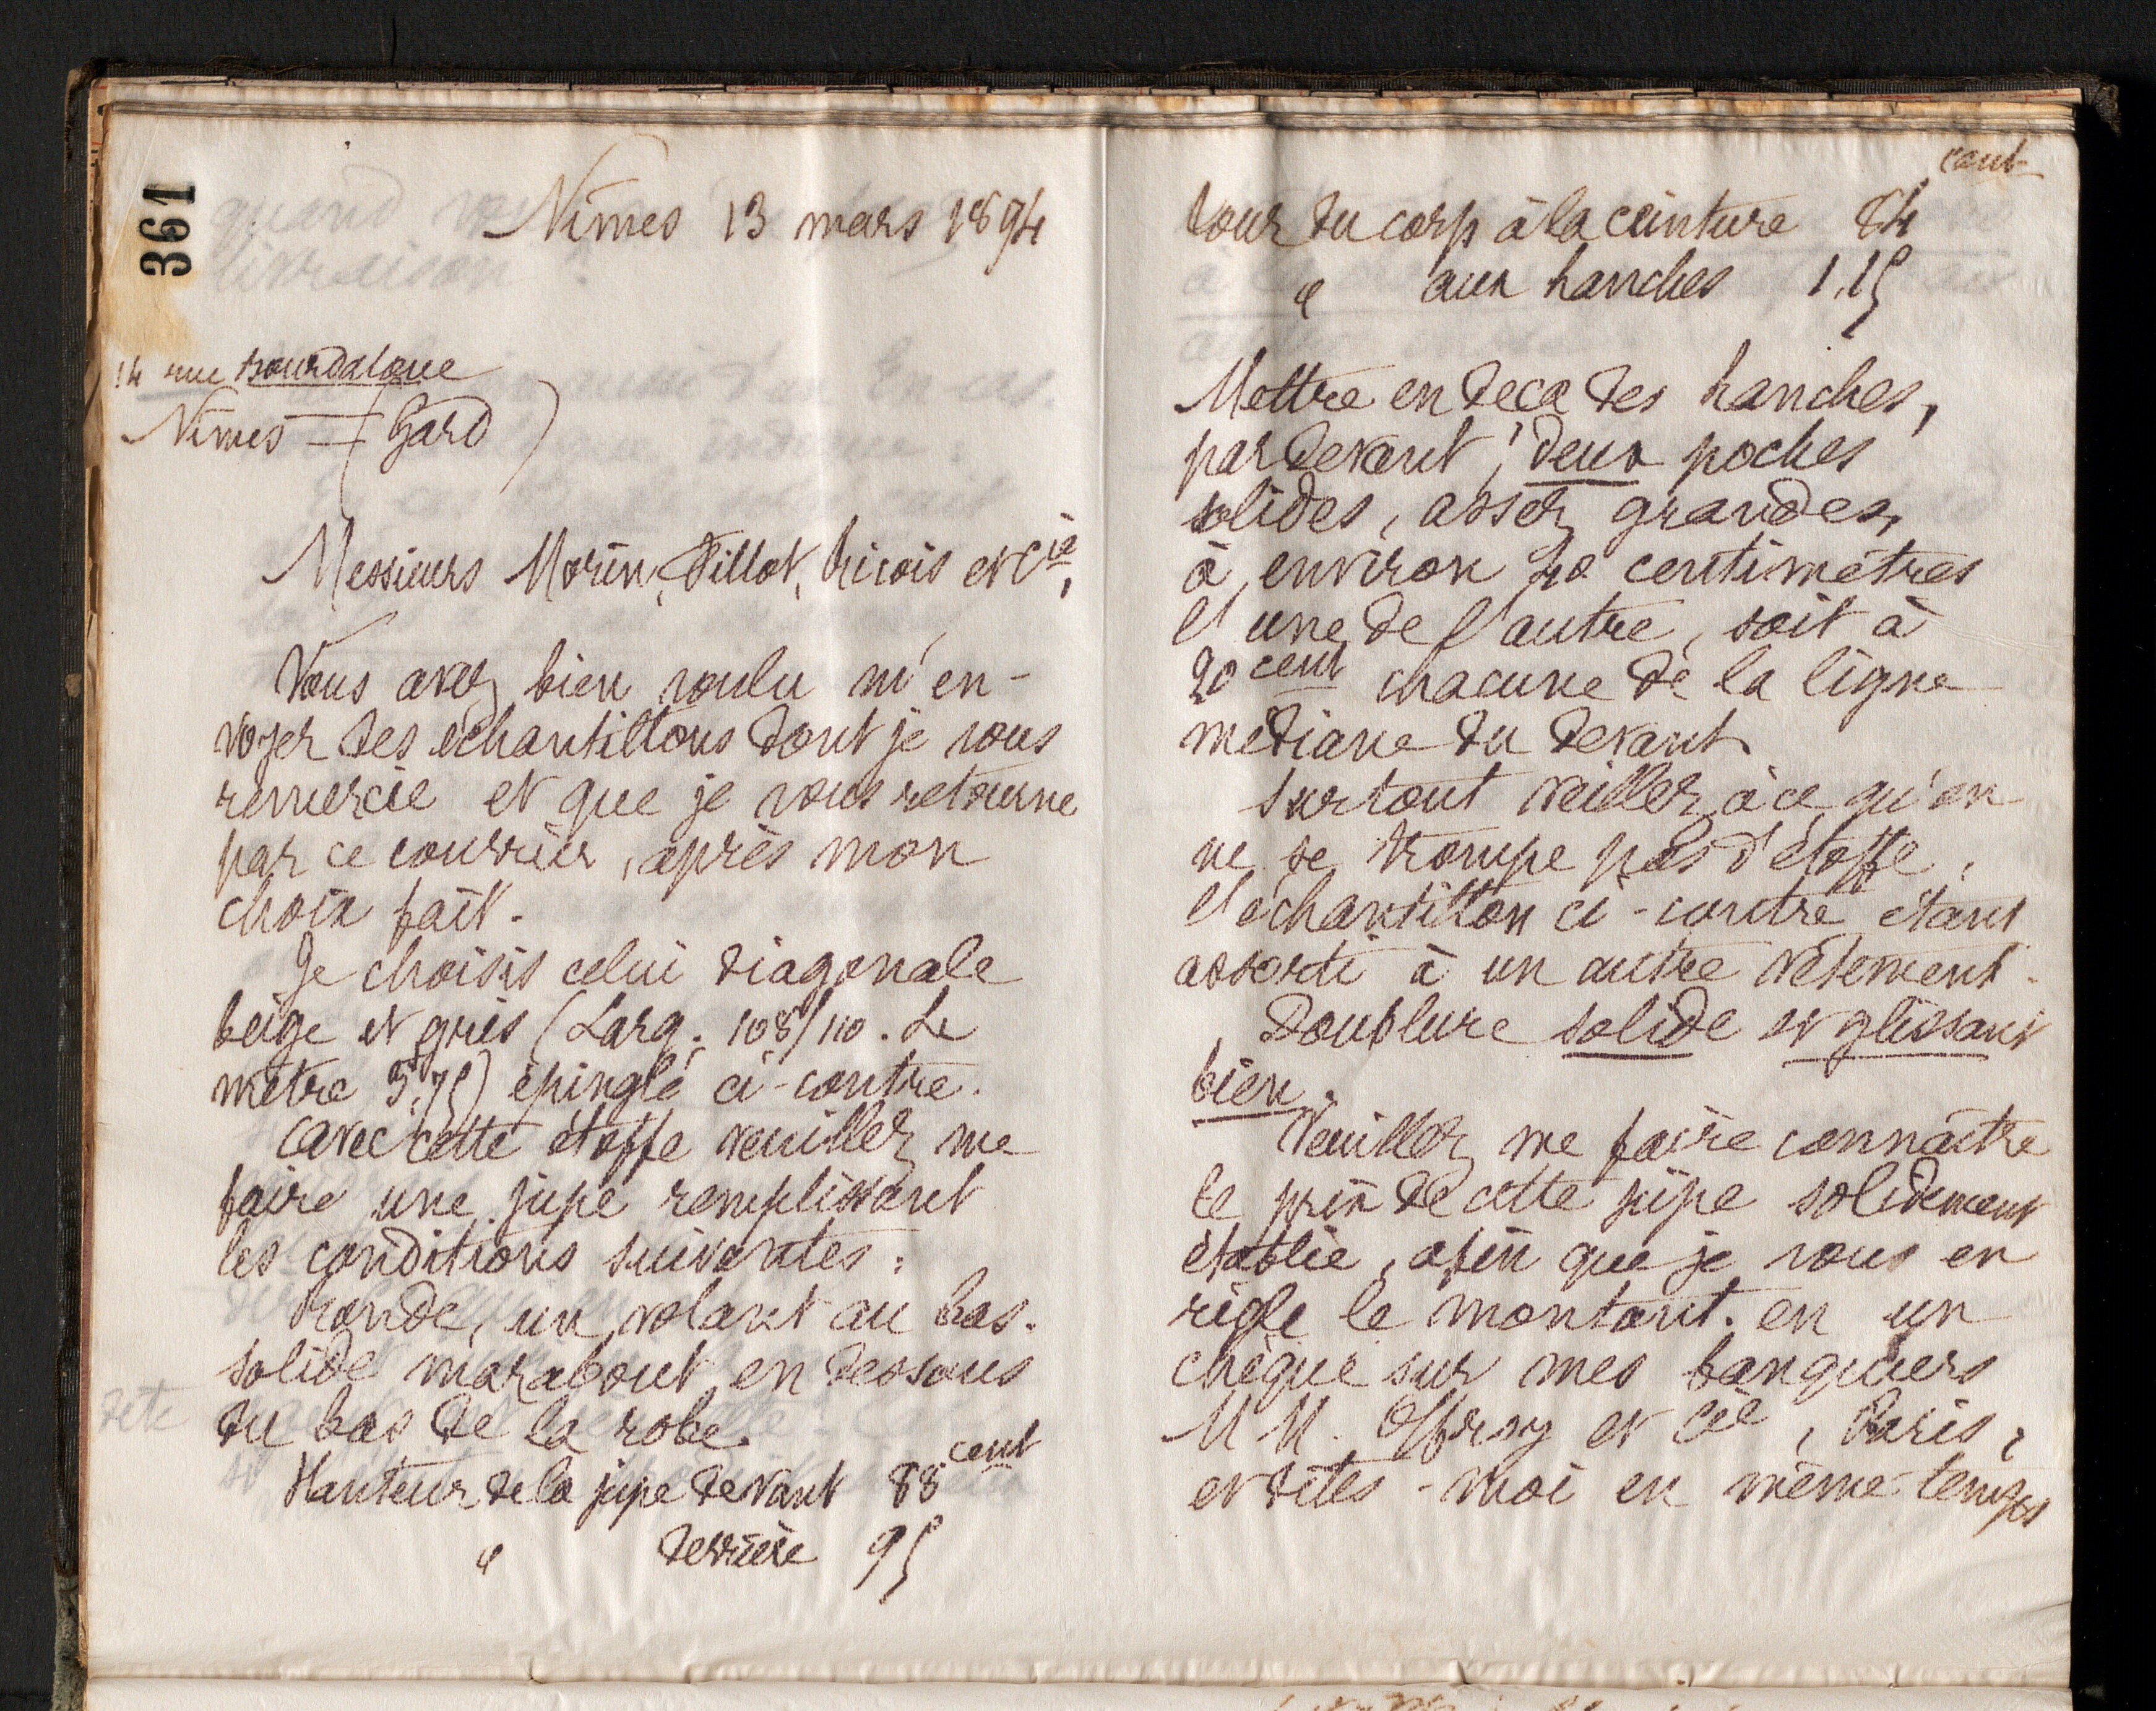 361
Nîmes 13 mars 1894
14 rue Bourdaloue
Nîmes – (Gard)
Messieurs Morin, Fillot, Ricois et Cie,
Vous avez bien voulu m'en-
voyer des échantillons dont je vous
remercie et que je vous retourne
par ce courrier, après mon
choix fait.
Je choisis celui diagonale
beige et gris (Larg. 108/110. Le
mètre 5,75) épinglé ci-contre.
Avec cette étoffe veuillez me
faire une jupe remplissant
les conditions suivantes :
Ronde, un volant au bas.
solide marabout en dessous
du bas de la robe.
Hauteur de la jupe devant 88 cent
" derrière 95
cent
tour du corp à la ceinture 84
" aux hanches 1,15
Mettre en deça des hanches,
par devant, deux poches
solides, assez grandes,
à environ 40 centimètres
l'une de l'autre, soit à
20 cent chacune de la ligne
médiane du devant.
Surtout veillez à ce qu'on
ne se trompe pas d'étoffe,
l'échantillon ci-contre étant
assorti à un autre vêtement.
Doublure solide et glissant
bien.
Veuillez me faire connaître
le prix de cette jupe solidement
établie, afin que je vous en
règle le montant. en un
chèque sur mes banquiers
M M. Offroy et Cie, Paris,
et dites-moi en même temps